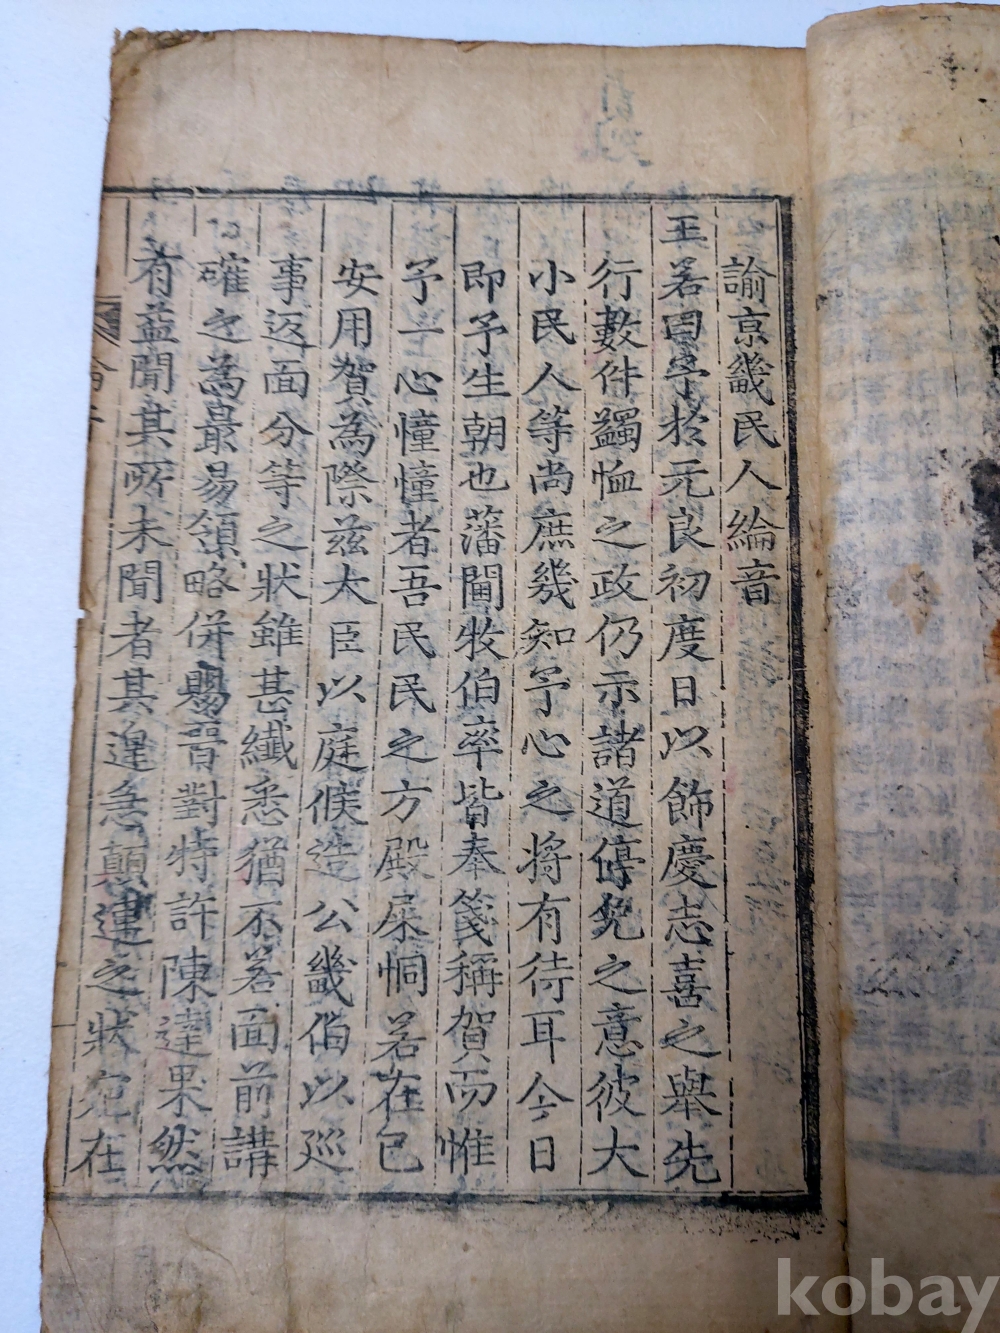 諭京畿民人綸音
王若曰予於元良初度日以飾慶志喜之舉先
行數件蠲恤之政仍示諸道停免之意彼大
小民人等尚庶幾知予心之將有待耳今日
即予生朝也藩閫牧伯率皆奉箋稱賀而惟
予一心憧憧者吾民民之方殿屎恫若在己
安用賀為際茲大臣以庭候造公畿伯以廵
事返面分等之狀雖甚纖悉猶不若面前講
確之為最易領略併賜晋對特許陳達果然
有益聞其所未聞者其遑急顛連之狀宛在
kobay